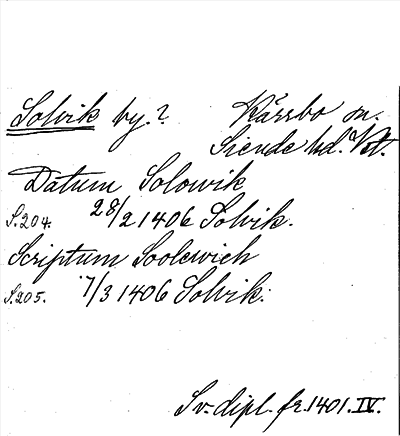 Solvik by.? Kärrbo sn.
Siende hd. Vtl.
Datum Solowik
S.204. 28/2 1406 Solvik.
Scriptum Soolewich
S.205. 7/3 1406 Solvik.
Sv. dipl. fr. 1401. IV.